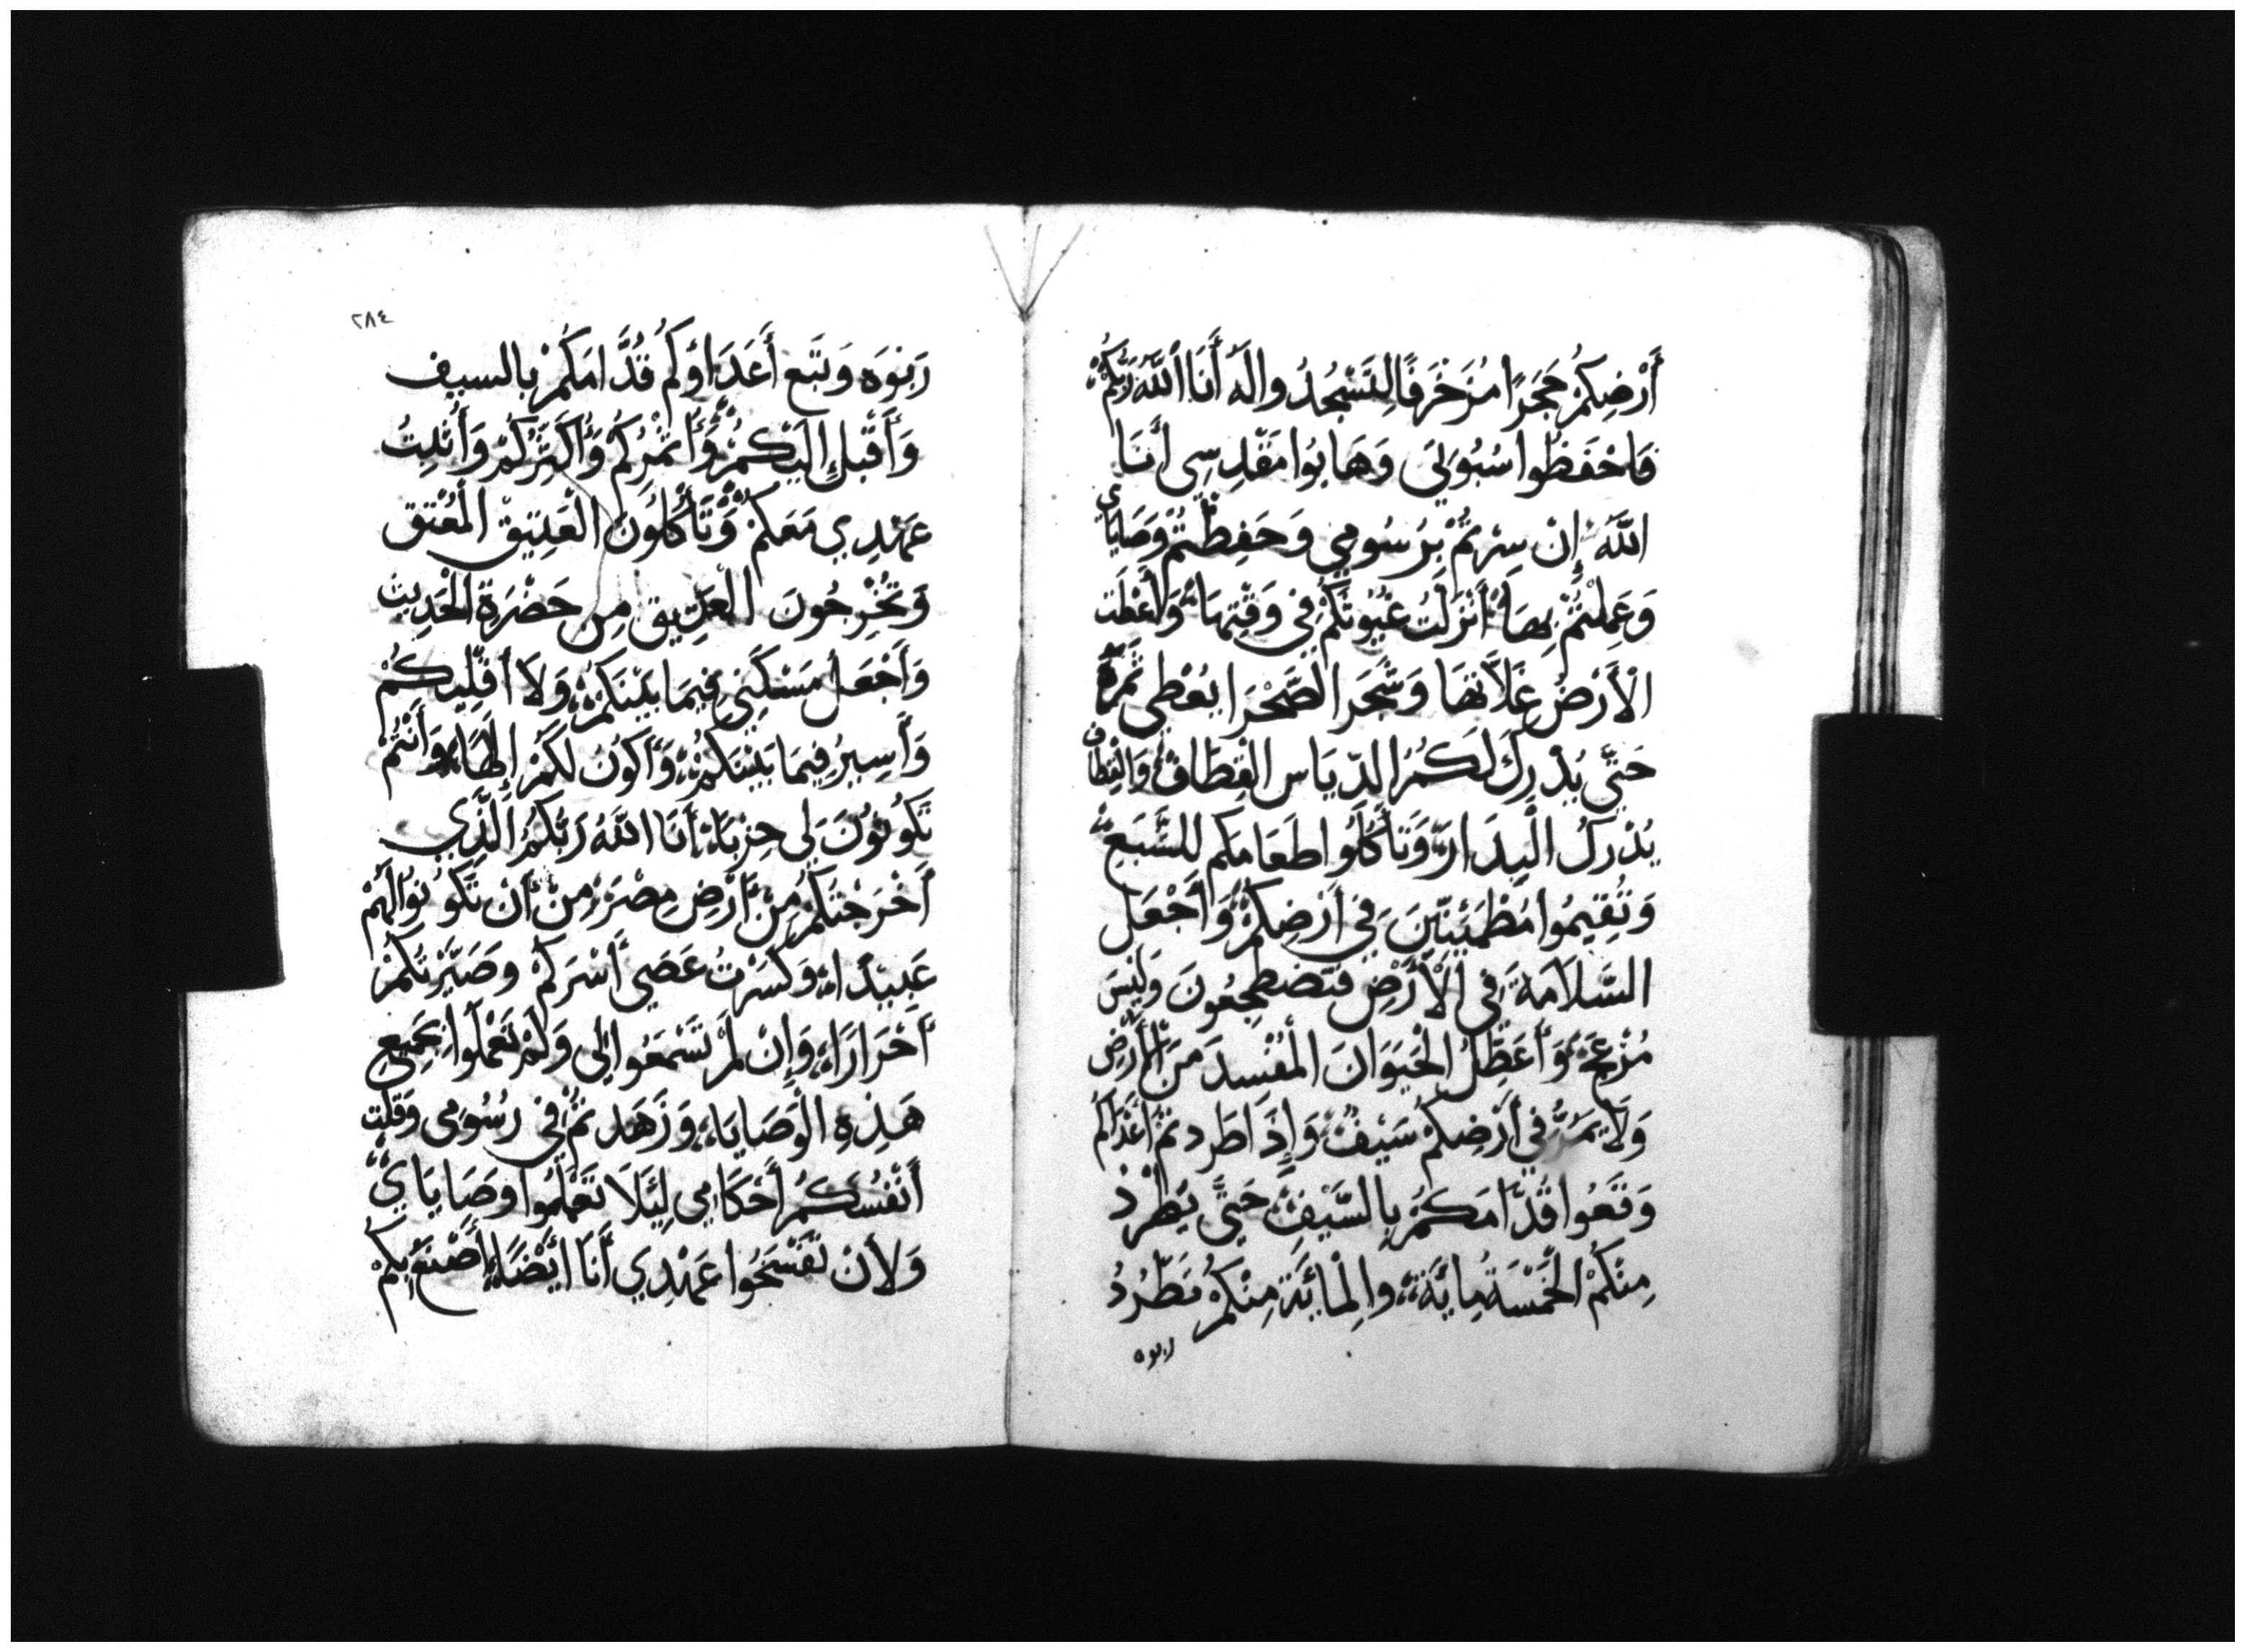 أَرْضِكُمْ حَجَرًا مُزَخْرَفًا لِتَسْجُدُوا لَهُ أَنَا اللَّهُ رَبُّكُمْ
فَاحْفَظُوا سُبُوتِي وَهَابُوا مَقْدِسِي أَنَا
اللَّهُ إِنْ سِرْتُمْ بِرُسُومِي وَحَفِظْتُمْ وَصَايَاي
وَعَمِلْتُمْ بِهَا أَنْزَلْتُ غُيُوثَكُمْ فِي وَقْتِهَا وَأَعْطَت
الْأَرْضُ غَلَّاتَهَا وَشَجَر الصَّحْرَا يُعْطِي ثَمَرَهُ
حَتَّى يُدْرِكَ لَكُمُ الدِّيَاس القِطَاف وَالقِطَاف
يُدْرِكُ الْبِدَار وَتَأْكُلُوا طَعَامَكُم للشَّبَع
وَتُقِيمُوا مُطْمَئِنِّينَ فِي أَرْضِكُمْ وَأَجْعَل
السَّلَامَةَ فِي الْأَرْضِ فَتَضْطَجِعُونَ وَلَيْسَ
مُزْعِجٌ وَأُعَطِّلُ الْحَيَوَانَ الْمُفْسِدَ مِنَ الْأَرْضِ
وَلَا يَمُرُّ فِي أَرْضِكُمْ سَيْفٌ وَإِذَا طَرَدتُمْ أَعْدَاكُم
وَقَعُوا قُدَّامَكُمْ بِالسَّيْفِ حَتَّى يَطْرُد
مِنْكُمُ الْخَمْسَةُ مِائَةً وَالْمِائَةُ مِنْكُمْ تَطْرُدُ
ربوه
٢٨٤
رَبْوَه وَتَقَع أَعْدَاؤكُم قُدَّامَكُمْ بالسيف
وَأُقْبِل إِلَيْكُمْ وَأُثْمِرُكُمْ وَأُكَثِّرُكُمْ وَأُثْبِتُ
عَهْدِي مَعَكُمْ وَتَأْكُلُونَ الْعَتِيق الْمُعْتَق
وَتُخْرِجُونَ الْعَتِيق مِن حَضْرَةِ الْحَدِيث
وَأَجْعَل مَسْكَنِي فِيمَا بَيْنَكُمْ وَلَا أَقْلِيكُمْ
وَأَسِيرُ فِيمَا بَيْنَكُمْ وَأَكُونُ لَكُمْ إِلَهًا وَأَنْتُمْ
تَكُونُونَ لِي حِزْبًا أَنَا اللَّهُ رَبُّكُمُ الَّذِي
أَخْرَجْتُكُمْ مِنْ أَرْضِ مِصْرَ مِنْ أَنْ تَكُونُوا لَهُمْ
عَبِيدًا وَكَسَرْتُ عَصَى أَسْرَكُمْ وصَيَّرْتُكُمْ
أَحْرَارًا وَإِنْ لَمْ تَسْمَعُوا لِي وَلَمْ تَعْمَلُوا بِجَمِيعِ
هَذِهِ الْوَصَايَا وَزَهَدتُمْ فِي رُسُومِي وَقَلَت
أَنْفُسُكُمْ أَحْكَامِي لِئَلَا تَعْمَلُوا وصَايَايَّ
وَلأَنْ تَفْسَخُوا عَهْدِي أَنَا أَيْضًا أَصْنَعُ بِكُمْ